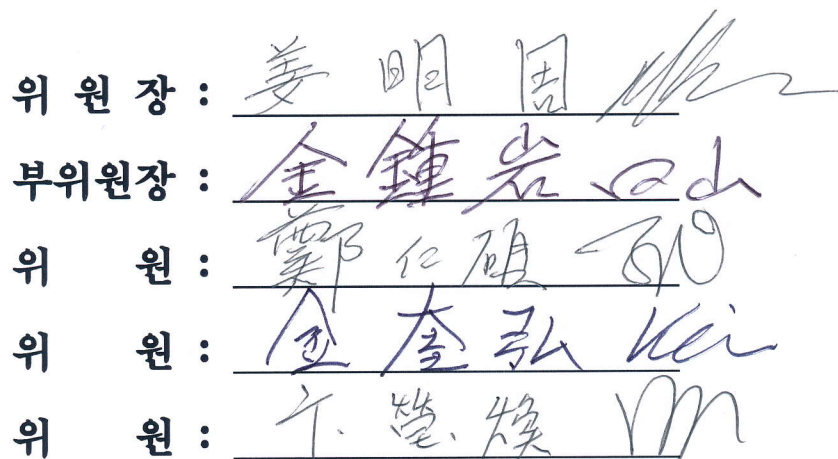 위 원 장 : 姜 明 周
부위원장 : 金 鍾 岩
위 원 : 鄭 仁 碩
위 원 : 金 奎 弘 Kei
위 원 : 卞. 榮. 煥